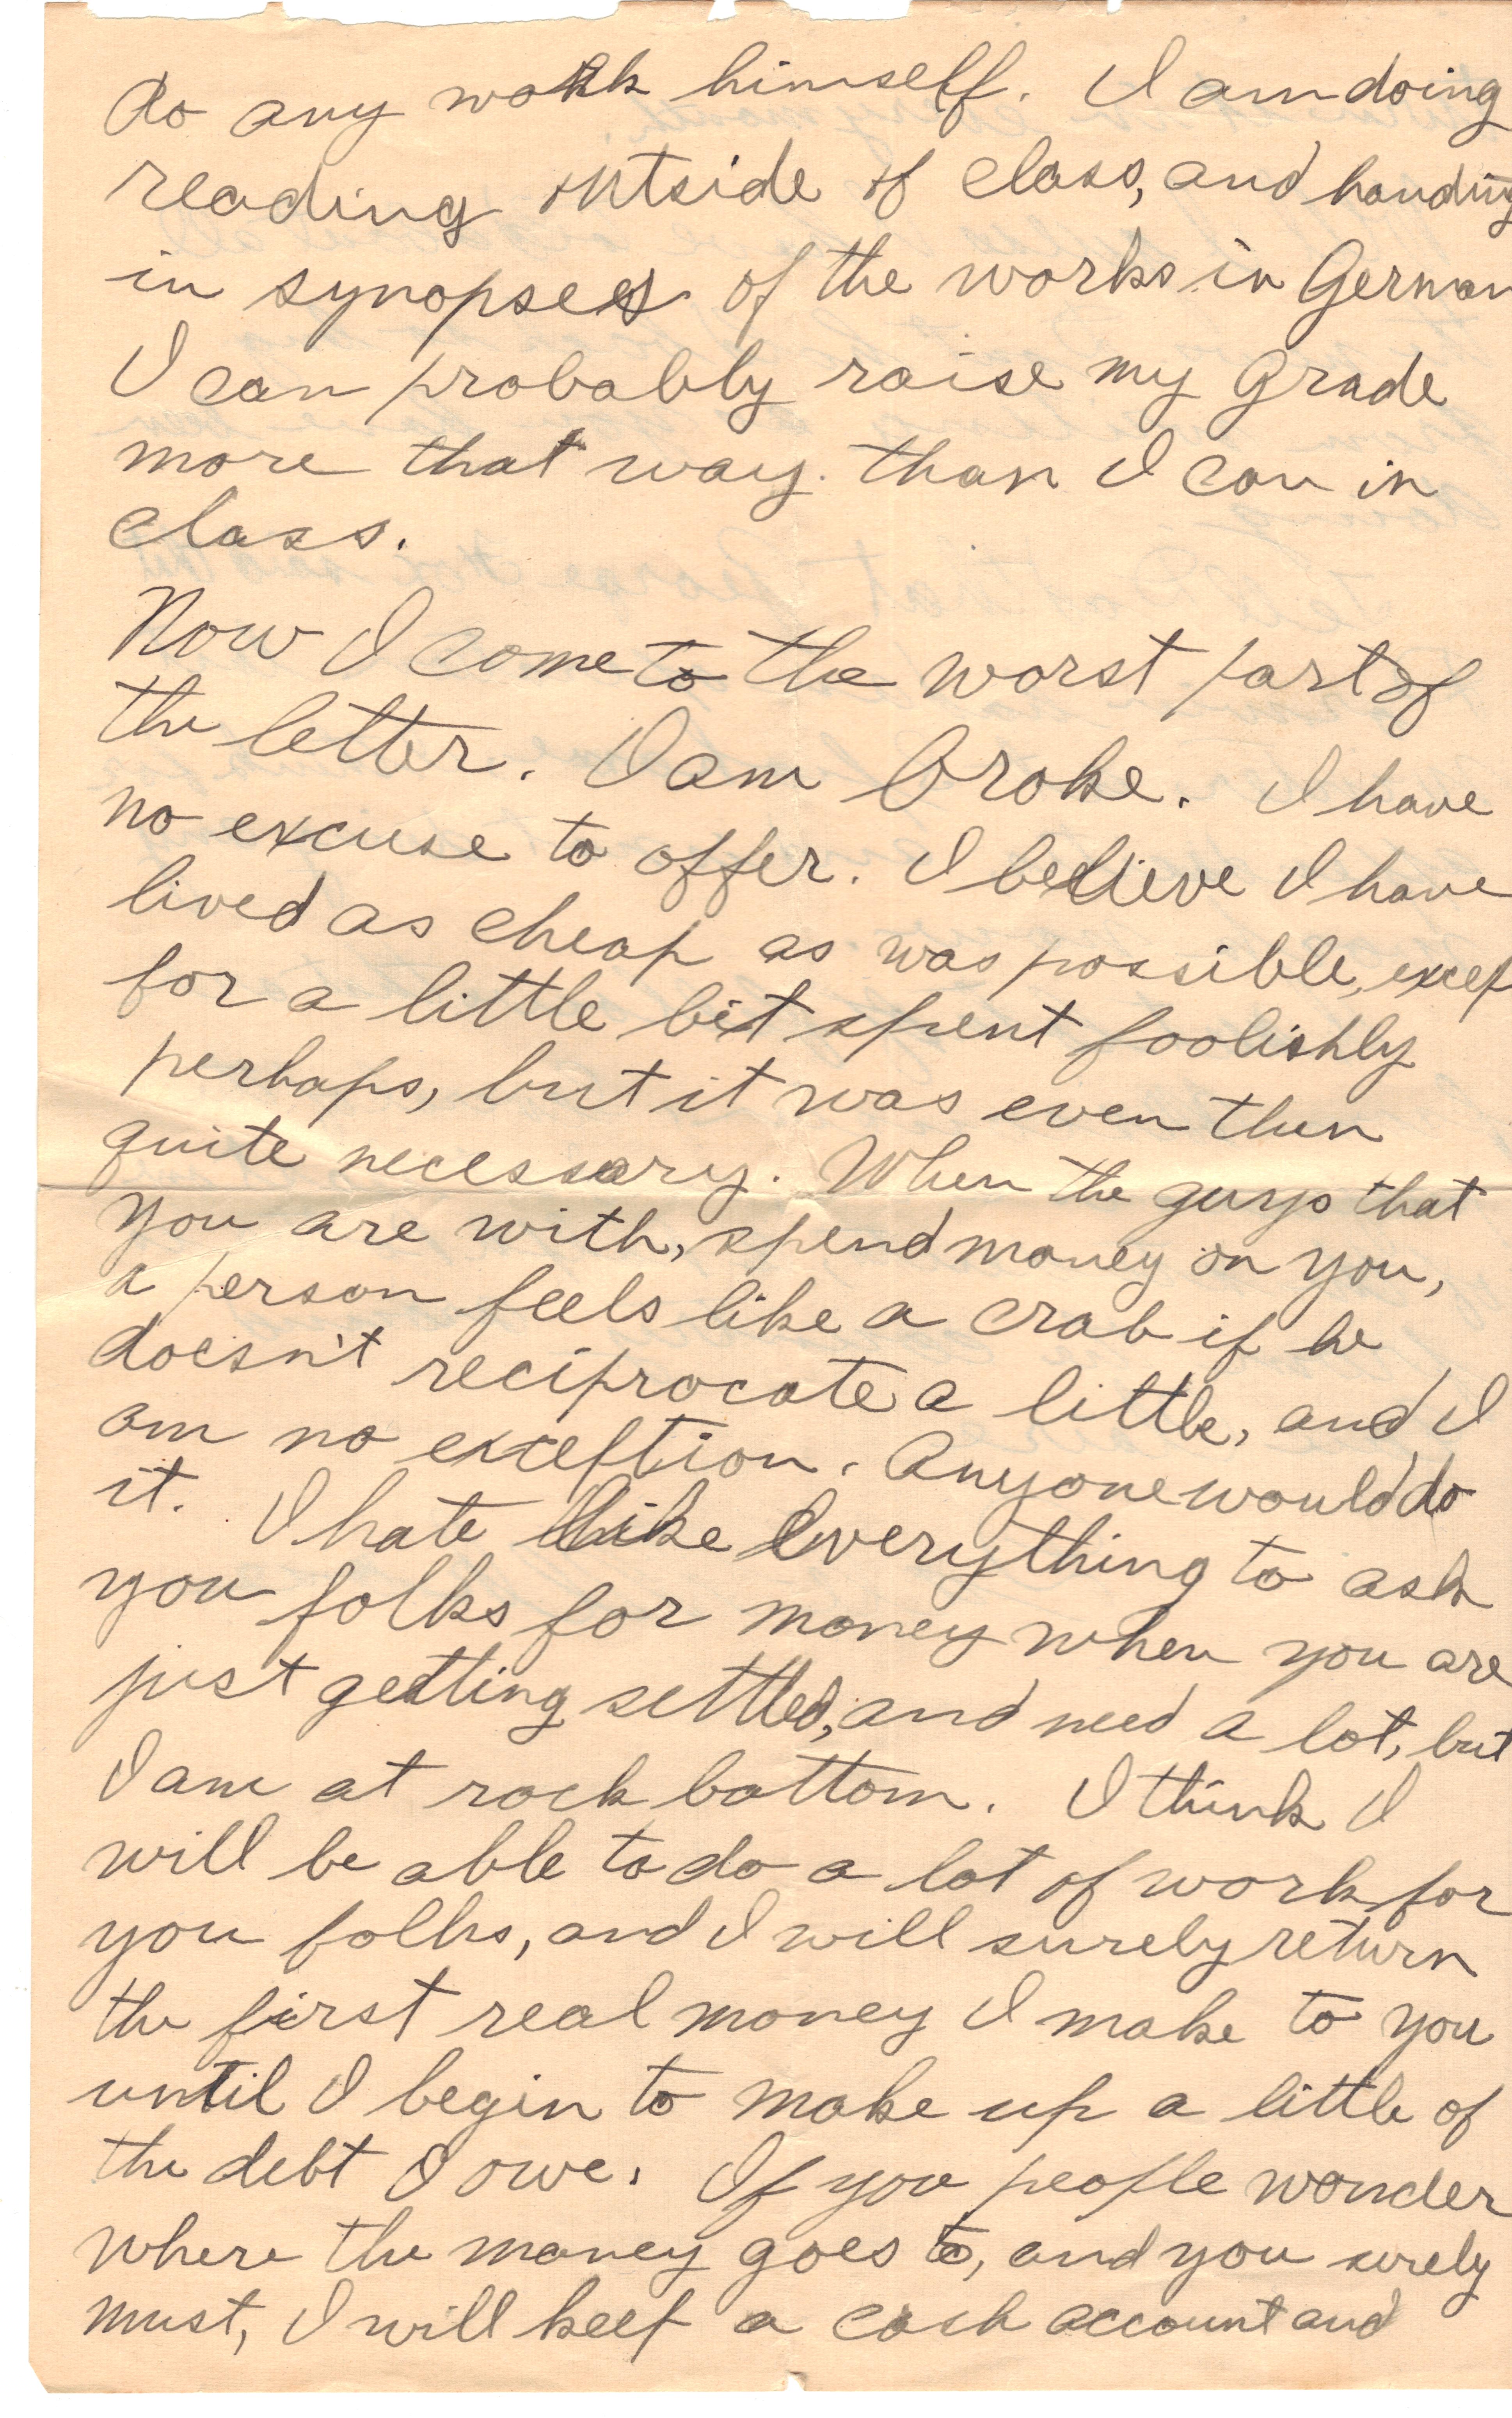 do any work himself. I am doing
reading outside of class, and handing
in synopses of the works in German
I can probably raise my grade
more that way. than I can in
class.
Now I come to the worst part of
the letter. I am broke. I have
no excuse to offer. I believe I have
lived as cheap as was possible, excep
for a little bit spent foolishly
perhaps, but it was even then
quite necessary. When the guys that
you are with, spend money on you,
a person feels like a crab if he
doesn't reciprocate a little, and I
am no exception. Anyone would do
it. I hate like everything to ask
you folks for money when you are
just getting settled, and need a lot, but
I am at rock bottom. I think I
will be able to do a lot of work for
you folks, and I will surely return
the first real money I make to you
until I begin to make up a little of
the debt I owe. If you people wonder
where the money goes to, and you surely
must, I will keep a cash account and